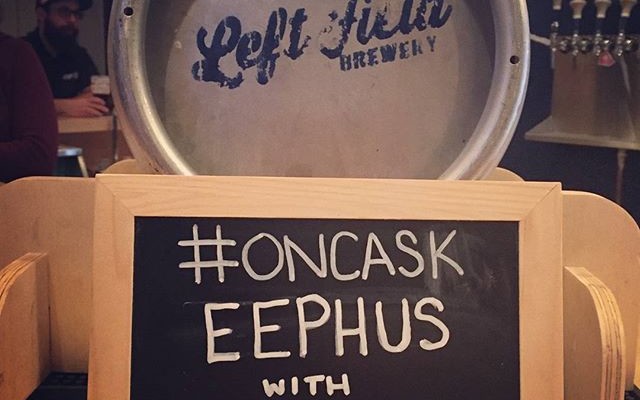 Left Field
BREWERY
#ONCASK
EEPHUS
WITH